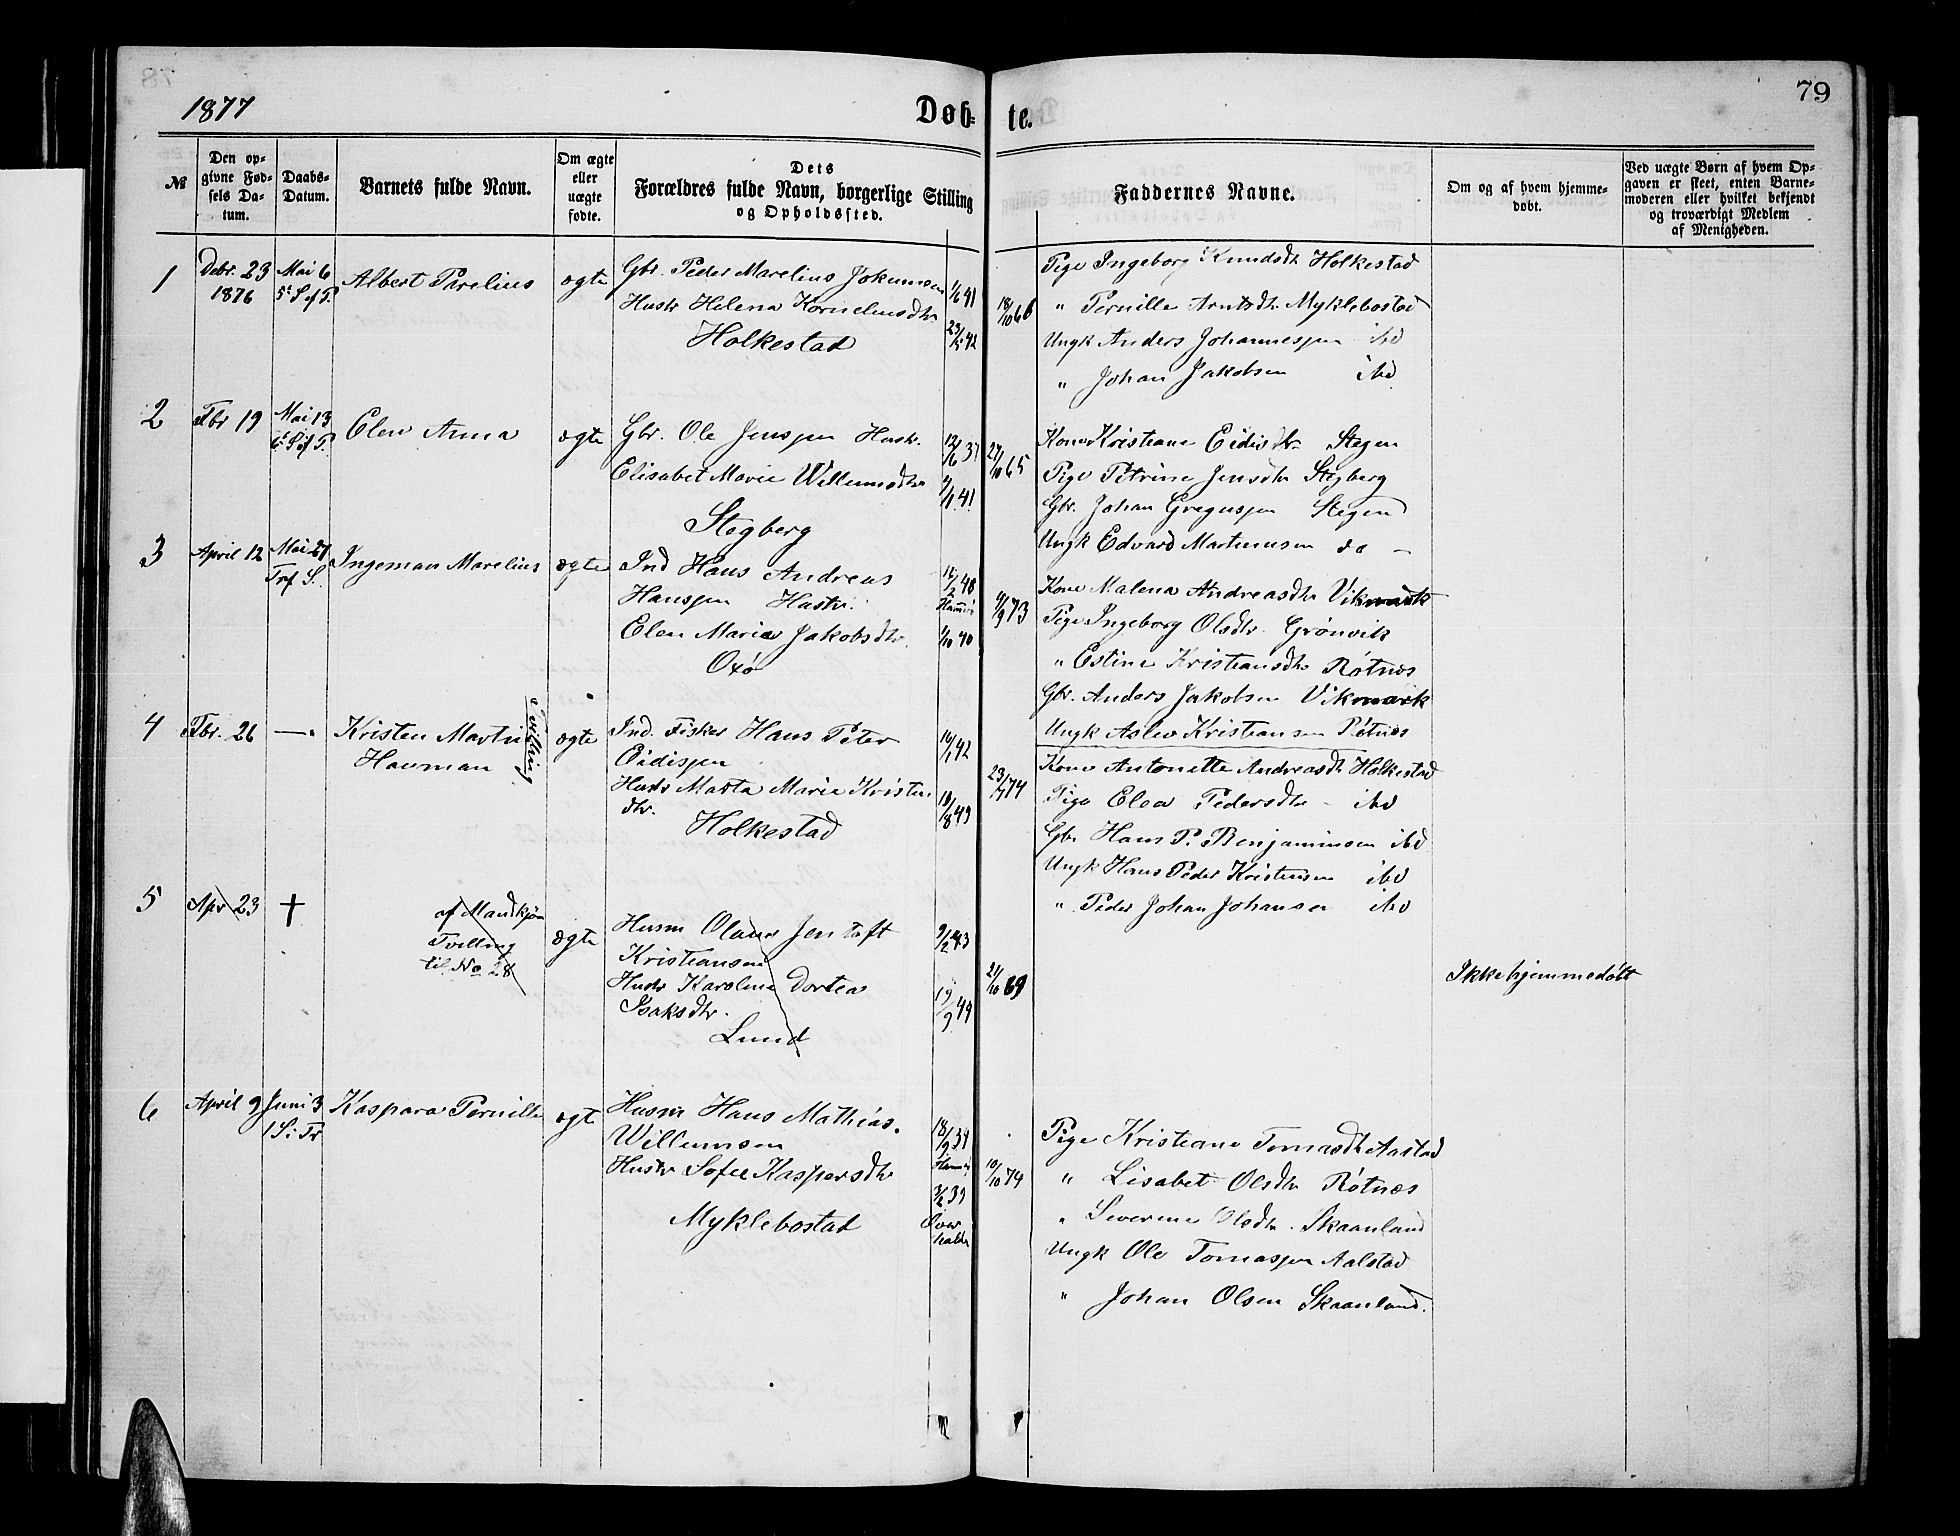 1877
Døb-
te.
79
№
Den op-
givne Fød-
sels Da-
tum.
Daabs-
Datum.
Barnets fulde Navn.
Om ægte
eller
uægte
fødte.
Dets
Forældres fulde Navn, borgerlige Stilling
og Opholdssted.
Faddernes Navne.
Om og af hvem hjemme-
døbt.
Ved uægte Børn af hvem Op-
gaven er skeet, enten Barne-
moderen eller hvilket bekjendt
og troværdigt Medlem
af Menigheden.
1
Debr. 23
1876
Mai 6
5' S ef P.
Albert Parelius
ægte
Gbr. Peder Marelius Jokumsen
Hustr Helena Korneliusdtr
Holkestad
1/6 41
23/5 42
18/10 66
Pige Ingeborg Knudsdtr Holkestad
" Pernille Arntsdtr Myklebostad
Ungk Anders Johannesen ibd
" Johan Jakobsen ibd
2
Fbr 19
Mai 13
6' S ef P.
Elen Anna
ægte
Gbr. Ole Jenssen Hustr.
Elisabet Marie Willumsdtr
Stegberg
12/6 37
41
27/10 65
Kone Kristiane Eidisdtr Stegen
Pige Petrine Jensdtr Stegberg
Gbr. Johan Gregussen Stegen
Ungk Edvard Martinusen do -
3
April 12
Mai 27
Trf S.
Ingeman Marelius
ægte
Ind Hans Andreas
Hanssen Hustr.
Elen Maria Jakobsdtr.
Oxø
12/2 48
Hammerø
1/10 40
9/9 73
Kone Malena Andreasdtr Vikmark
Pige Ingeborg Olsdtr. Grønvik
" Estine Kristiansdtr Røtnes
Gbr. Anders Jakobsen Vikmark
Ungk Aslev Kristiansen Røtnes
4
Fbr. 26
—
Kristen Martin
Havman
Tvilling
ægte
Ind. Fisker Hans Peter
Eidissen
Hustr Marta Marie Kristen
dtr.
Holkestad
16/1 42
18/8 49
23/7 74
Kone Antonette Andreasdtr Holkestad
Pige Elea Pedersdtr - ibd
Gbr Hans P. Benjaminsen ibd
Ungk Hans Peder Kristensen ibd
" Peder Johan Johansen ibd
5
Apr 23
+
af Mandkjøn
Tvilling
til No 28
ægte
Husm Olaus Jentoft
Kristiansen
Hustr Karoline Dortea
Isaksdtr.
Lund
9/2 43
19/9 49
21/10 69
Ikke hjemmedøbt
6
April 9
Juni 3
1 S: Tr
Kaspara Pernille
ægte
Husm Hans Mathias
Willumsen
Hustr Sofie Kaspersdtr
Myklebostad
18/9 34
3/2 39
10/10 74
Pige Kristiane Tomasdtr Aastad
" Lisabet Olsdtr Røtnes
" Severine Olsdtr. Skaanland
Ungk Ole Tomassen Aalstad
" Johan Olsen Skaanland.